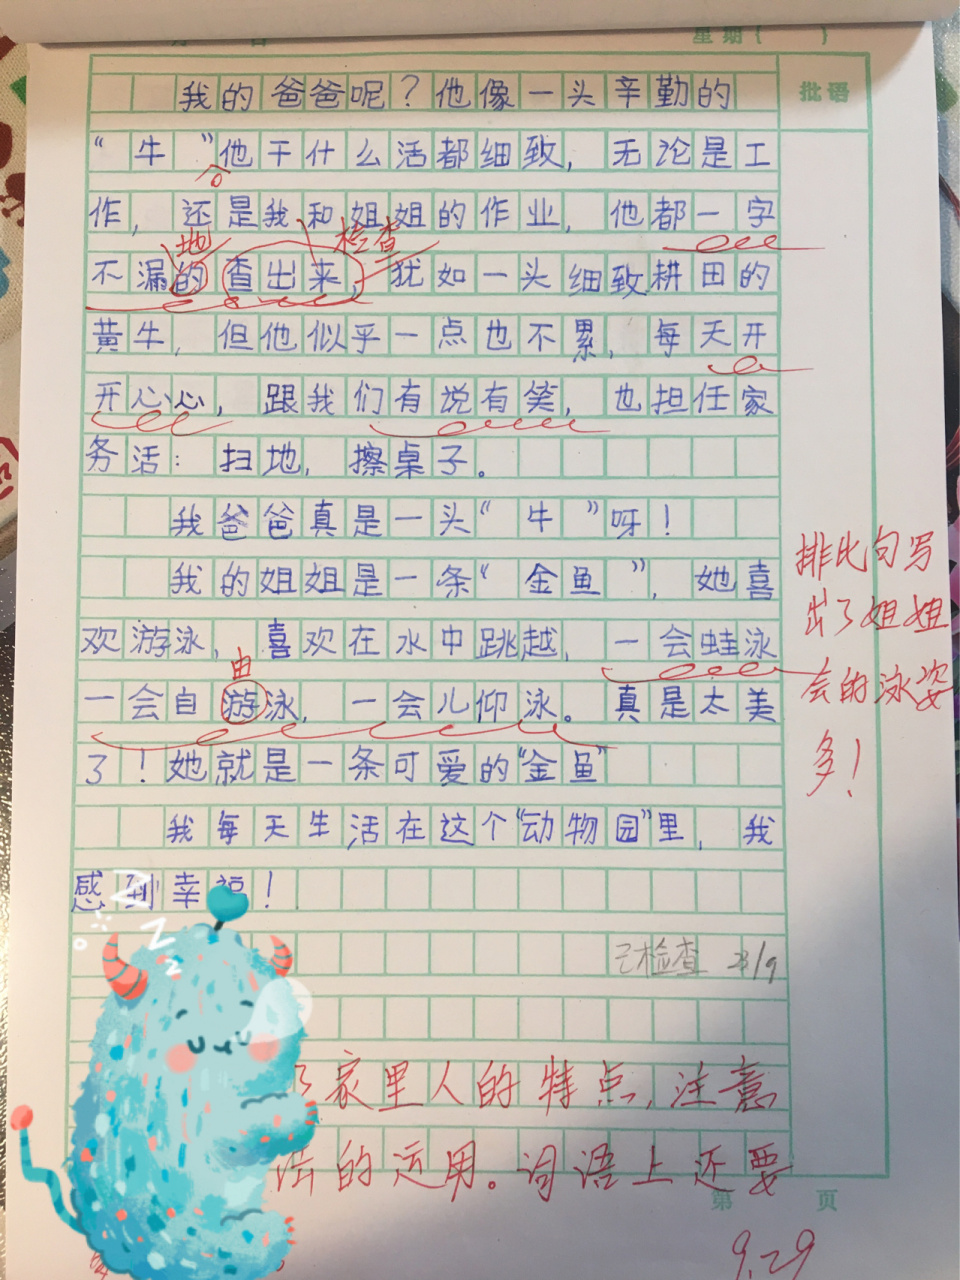 星期( )
批语
我的爸爸呢？他像一头辛勤的
“牛”他干什么活都细致，无沦是工
。
作，还是我和姐姐的作业，他都一字
地
检查
不漏的查出来，犹如一头细致耕田的
黄牛，但他似乎一点也不累，每天开
开心心，跟我们有说有笑，也担任家
务活：扫地，擦桌子。
我爸爸真是一头“牛”呀！
我的姐姐是一条“金鱼”，她喜
欢游泳，喜欢在水中跳越，一会蛙泳
由
一会自游泳，一会儿仰泳。真是太美
了！她就是一条可爱的“金鱼”
我每天生活在这个“动物园”里，我
感到幸福！
排比句写
出了姐姐
会的泳姿
多！
已检查 28/9
了家里人的特点，注意
法的运用。词语上还要
第 页
9.29